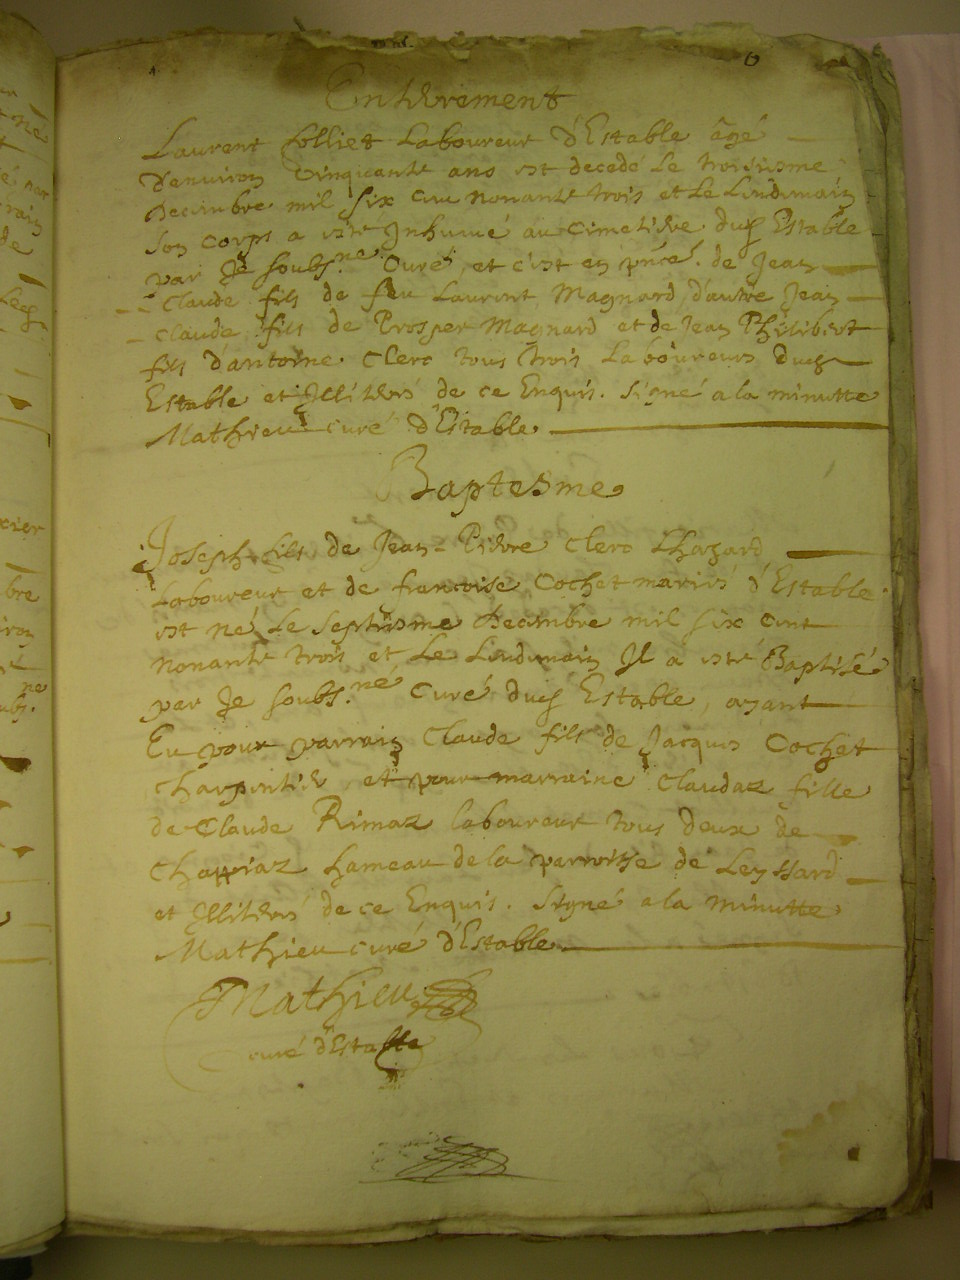 Entêrement
Laurent Folliet Laboureur d'Estable âgé
d'environ Cinquante ans est decedé Le troisiesme
Decembre mil six cens nonante trois et Le Lendemain
son corps a esté Inhumé au cimetiere dud Estable
par Je soubs.né Curé, et c'est en pñce. de Jean
Claude fils de feu Laurent Magnard, d'autre Jean
Claude fils de Prosper Magnard et de Jean Philibert
fils d'antoine Clerc tous trois Laboureurs dud
Estable et Illiterés de ce Enquis. signé a la minutte
Mathieu curé d'Estable.
Baptesme
Joseph fils de Jean-Pierre Clerc Lhazard
Laboureur et de francoise Cochet mariés d'Estable
est né Le septiesme Decembre mil six cent
nonante trois et Le Lendemain Il a esté Baptisé
par Je soubs.né Curé dud Estable, ayant
Eu pour parrain Claude fils de Jacques Cochet
Charpentier et pour marraine Claudaz fille
de Claude Rimaz laboureur tous deux de
Chappiaz hameau de la parroisse de Leyssard
et Illiterés de ce Enquis. Signé a la minutte
Mathieu curé d'Estable.
Mathieu
curé d'Estable